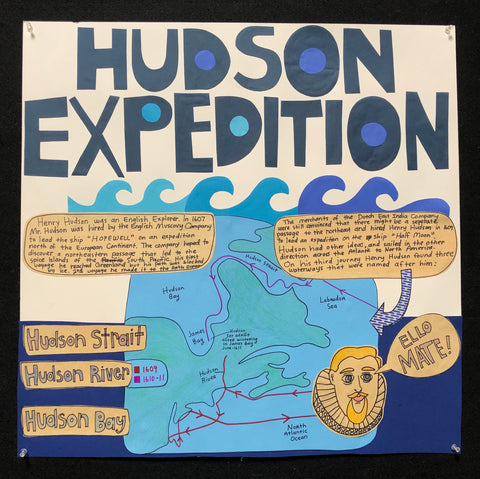 HUDSON
EXPEDITION
Henry Hudson was an English Explorer. In 1607
Mr. Hudson was hired by the English Muscovy Company
to lead the ship "HOPEWELL" on an expedition
north of the European Continent. The company hoped to
discover a northeastern passage that led to the
spice islands of the South Pacific. His first
voyage he reached Greenland but the path was blocked
by ice. 2nd voyage he made it to the
The merchants of the Dutch East India Company
were still convinced that there might be a separate
passage to the northeast and hired Henry Hudson in 1609
to lead an expedition on the ship "Half Moon".
Hudson had other ideas, and sailed in the other
direction across the Atlantic to North America.
On his third journey Henry Hudson found three
waterways that were named after him:
Hudson Strait
Hudson
Bay
Labrador
Sea
James
Bay
Hudson
wintering
in James Bay
Hudson
River
North
Atlantic
Ocean
Hudson Strait
Hudson River
Hudson Bay
1609
1610-11
ELLO
MATE!